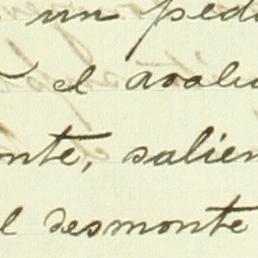 un ped
el avalu
onte, salien
l desmonte